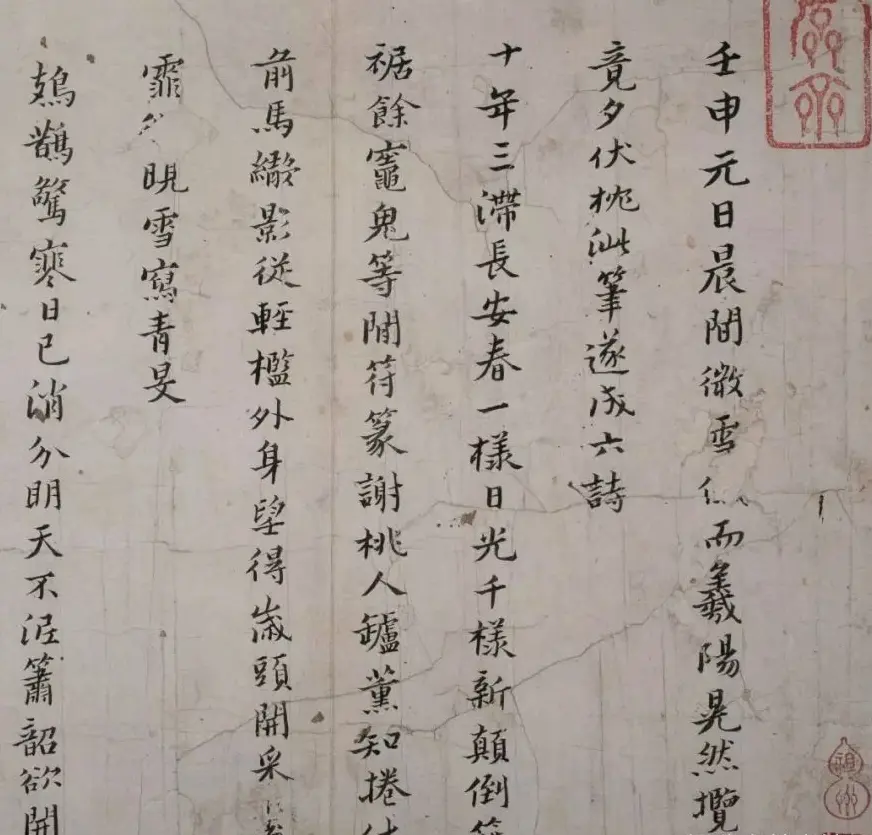 壬申元日晨間微雪而羲陽晃然攬
竟夕伏枕泚筆遂成六詩
十年三滯長安春一樣日光千樣新顛倒
裾餘竈鬼等閒符篆謝桃人鑪薰知捲
前馬繖影從輕檻外身望得歲頭開采
霏 晛雪寫青旻
鳷鵲驚寒日已消分明天不泥簫韶欲開